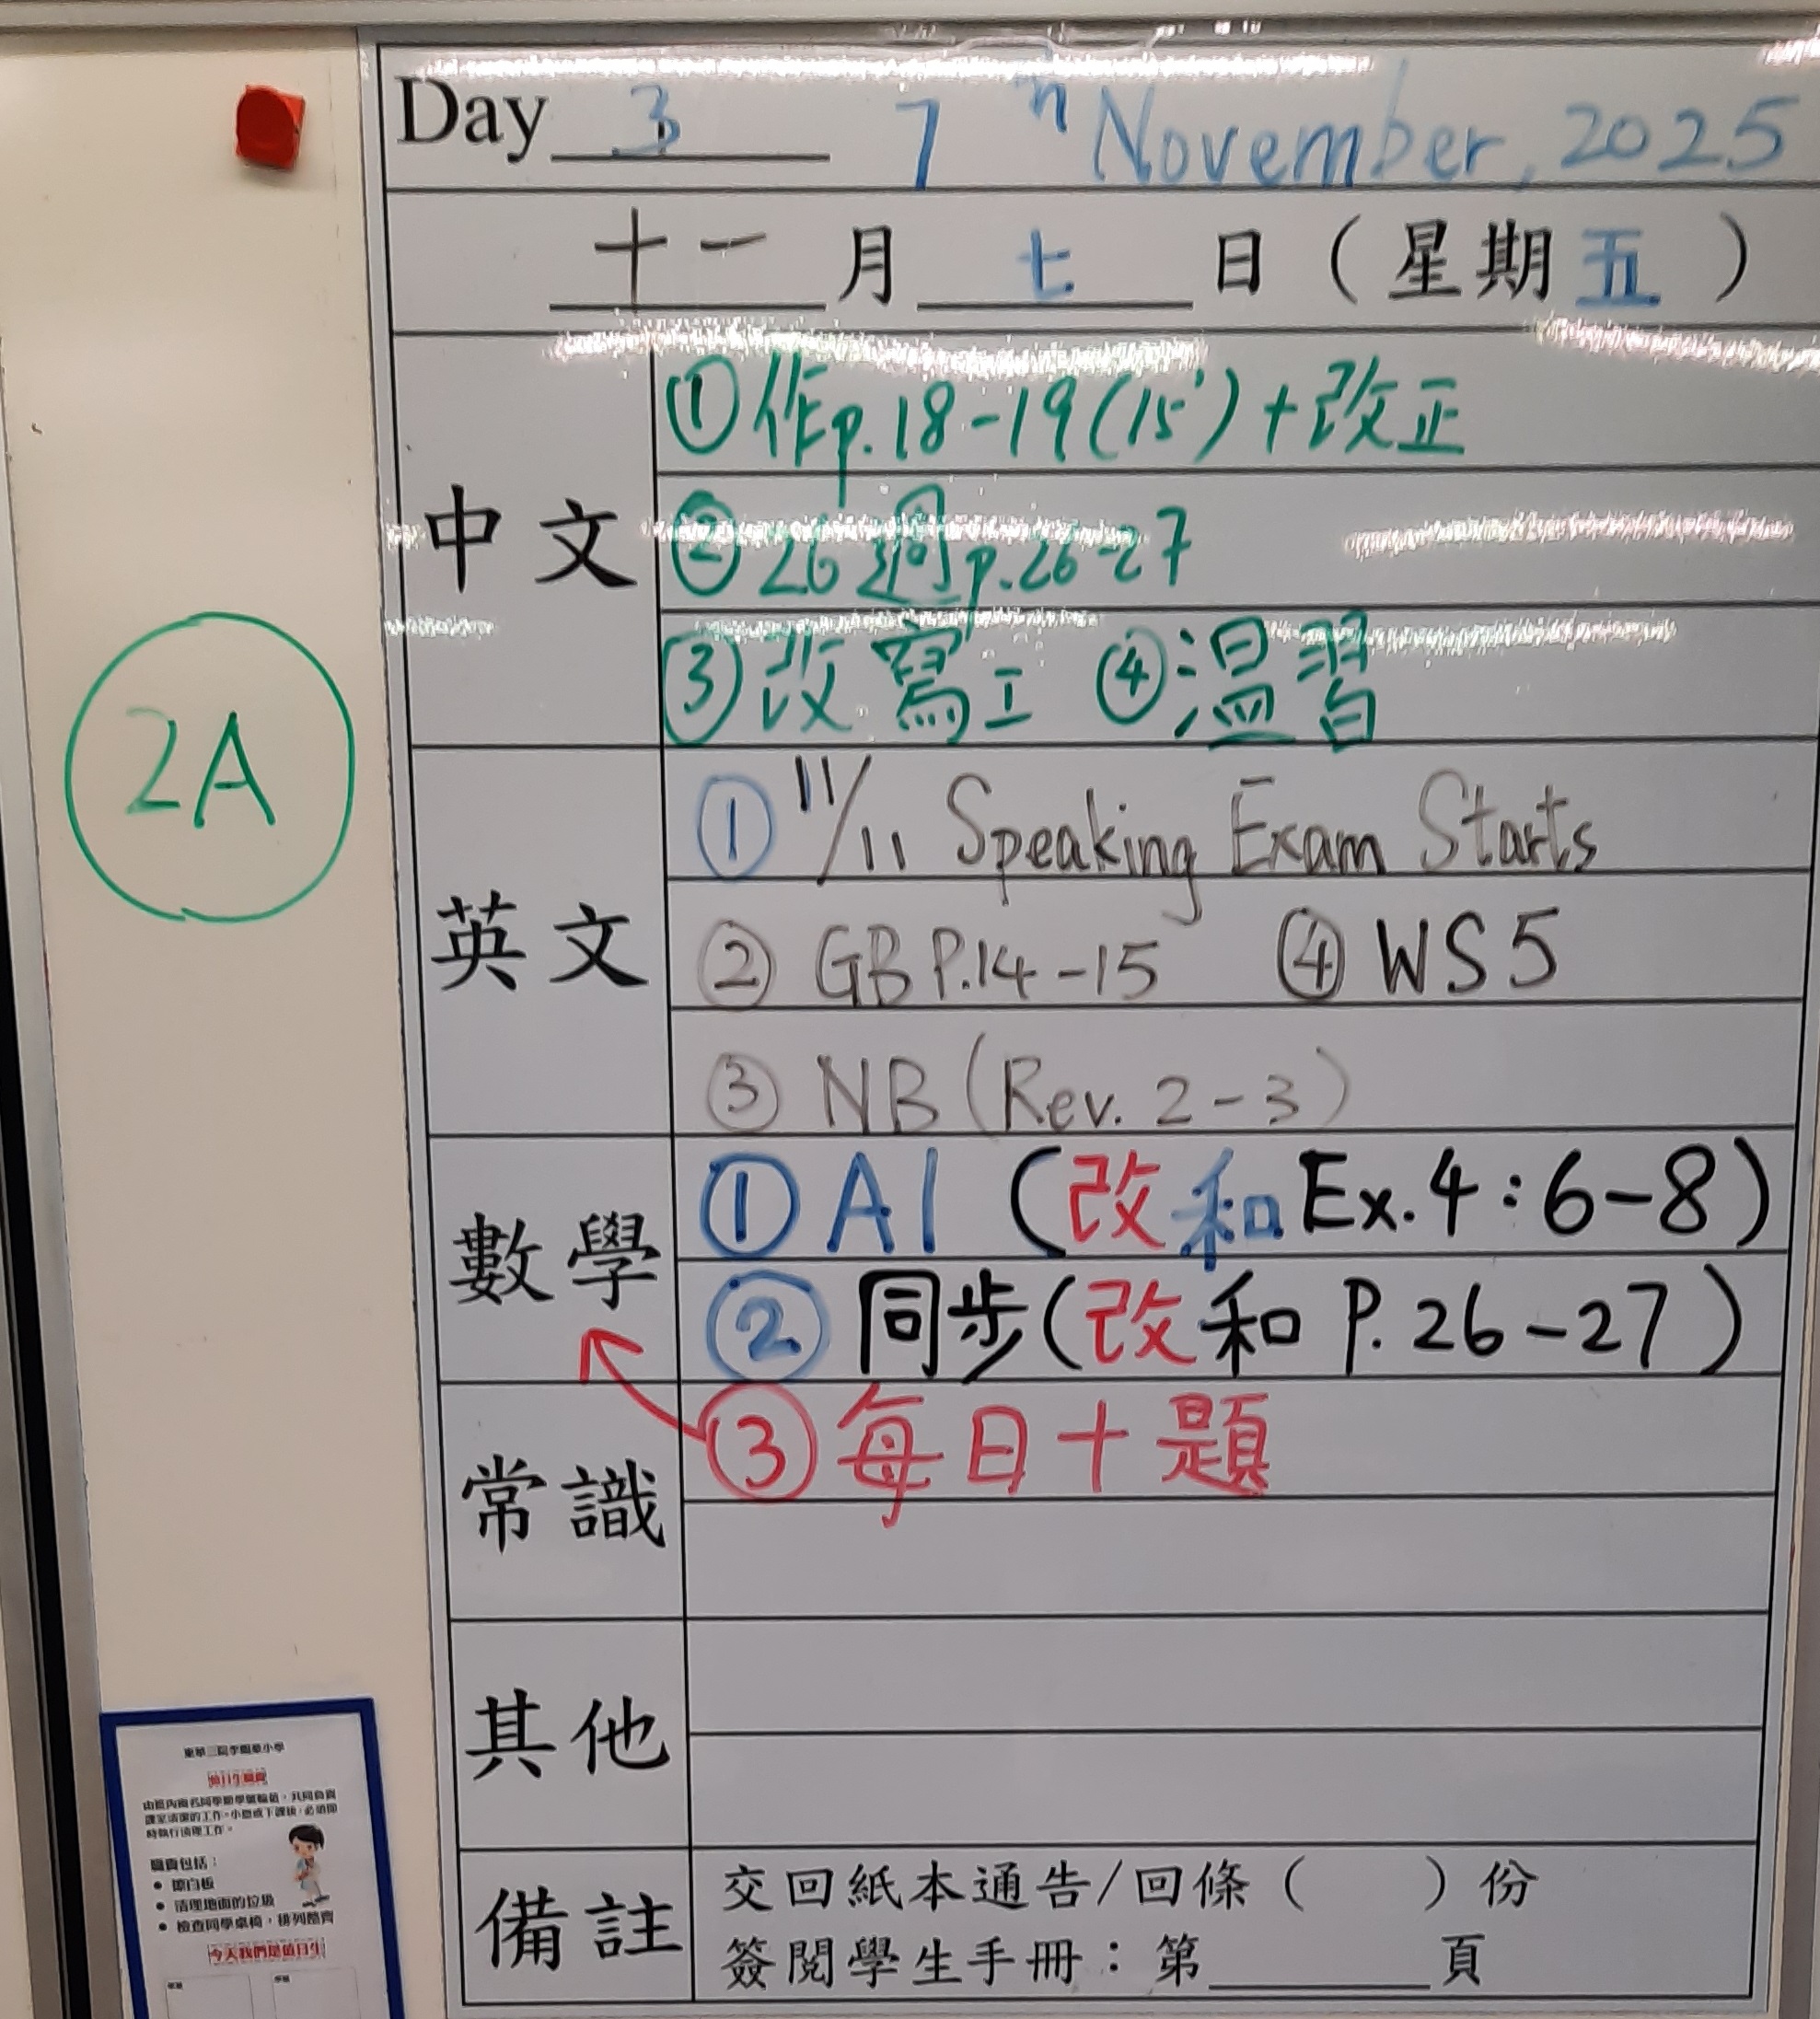 Day 3 7th November, 2025
十一月七日（星期五）
2A
中文
①作p.18-19(15')+改正
②26週p.26-27
③改寫工 ④溫習
英文
① 11/11 Speaking Exam Starts
② GB P.14-15 ④ WS5
③ NB (Rev. 2-3)
數學
① A1 (改和Ex.4:6-8)
② 同步(改和 P.26-27)
③ 每日十題
常識
其他
備註
交回紙本通告/回條（ ）份
簽閱學生手冊：第______頁
值日生職責
職責包括：
• 擦白板
• 清理地面的垃圾
• 檢查同學桌椅，排列整齊
今天我們是值日生